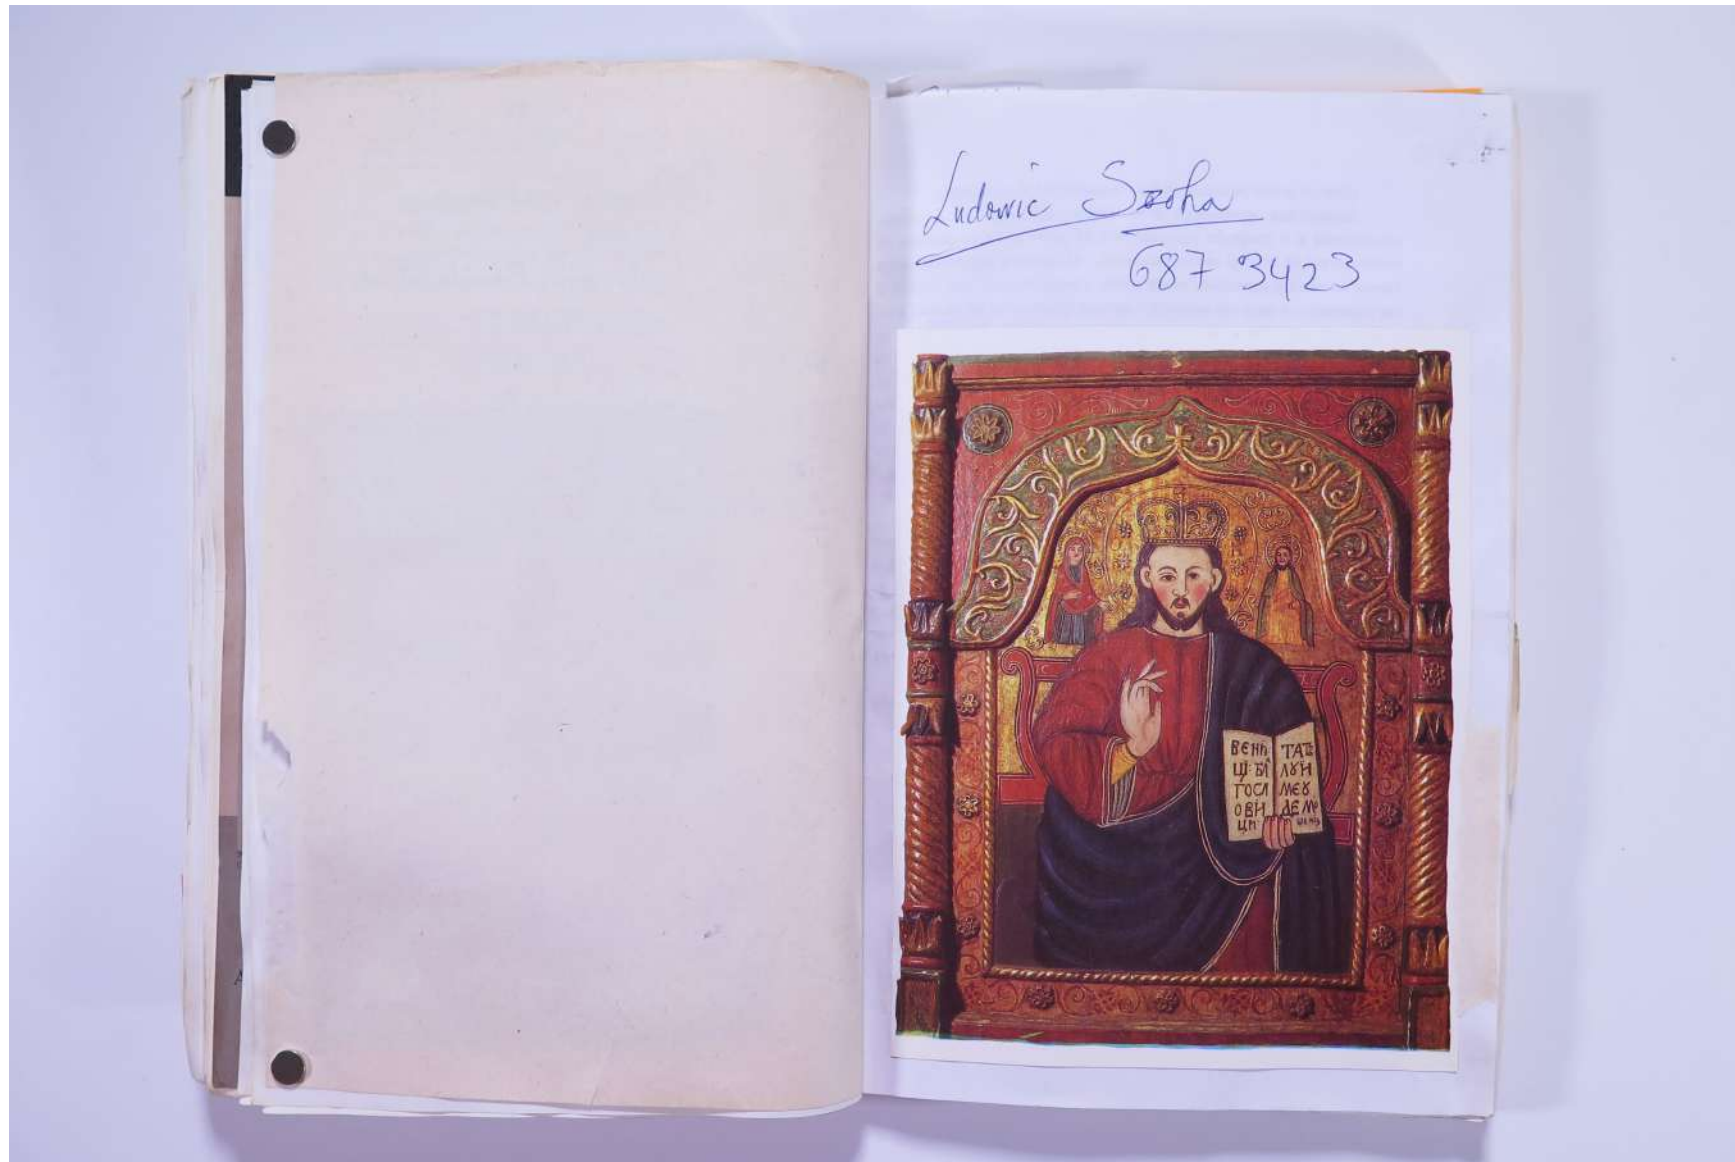 Ludowic Szoha
687 3423
ВЕНИ
ЦІ: БЛ
ГОСЛ
ОВИ
ЦИ
ТАТЪ
ЛꙊИ
МЕꙊ
ДЕМ